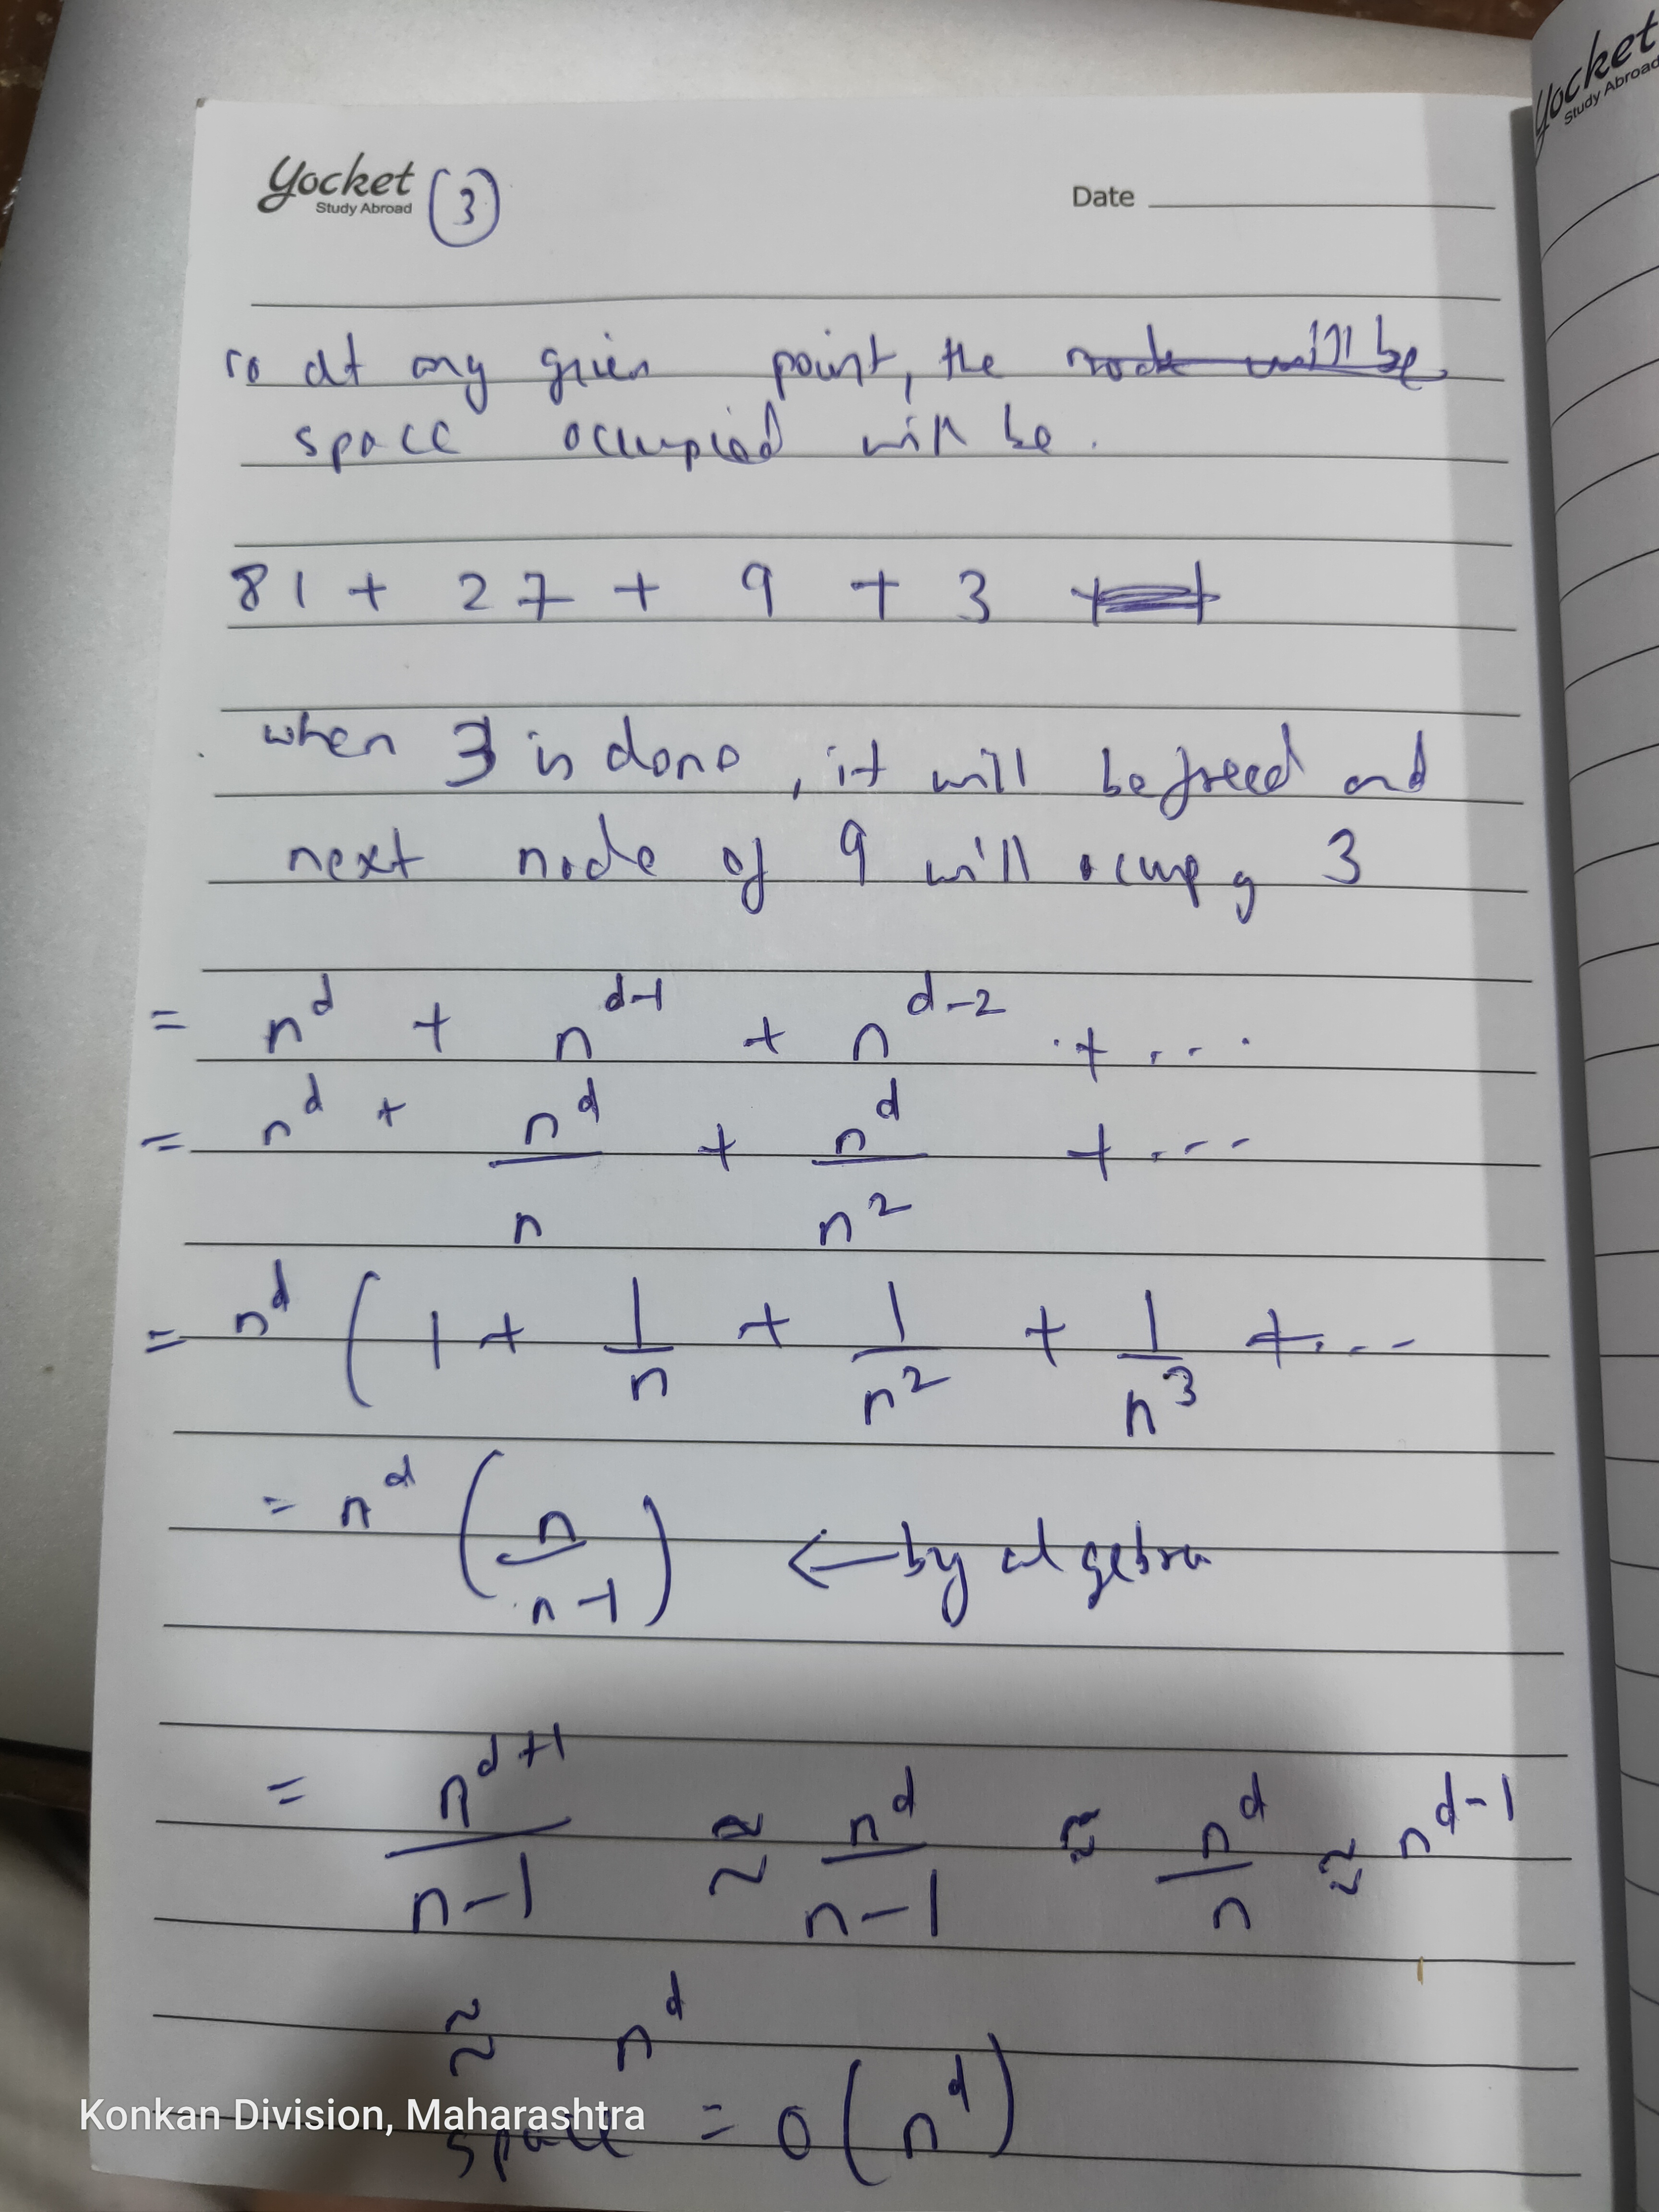 Yocket
Study Abroad
(3)
Date
Yocket
Study Abroad
so at any given point, the node will be
space occupied will be.
81 + 27 + 9 + 3
when 3 is done, it will be freed and
next node of 9 will occupy 3
= n^d + n^(d-1) + n^(d-2) + ...
= n^d + n^d/n + n^d/n^2 + ...
= n^d ( 1 + 1/n + 1/n^2 + 1/n^3 + ...
= n^d (n/(n-1)) ← by algebra
= n^(d+1)/(n-1) ≈ n^d/(n-1) ≈ n^d/n ≈ n^(d-1)
≈ n^d
space = O(n^d)
Konkan Division, Maharashtra